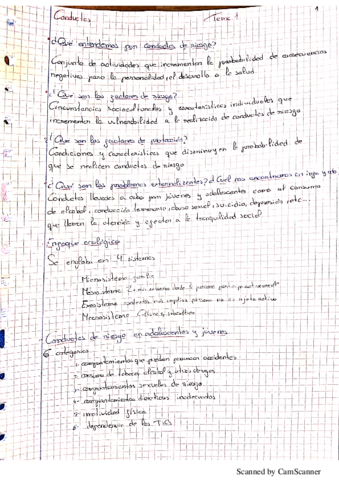 1
Conductas Tema 1
¿Qué entendemos por conductas de riesgo?
Conjunto de actividades que incrementan la probabilidad de consecuencias
negativas para la personalidad, el desarrollo o la salud
¿Que son los factores de riesgo?
Circunstancias socioculturales y características individuales que
incrementan la vulnerabilidad a la realización de conductas de riesgo
¿Que son los factores de protección?
Condiciones y características que disminuyen la probabilidad de
que se realicen conductas de riesgo
¿Qué son los problemas externalizantes? ¿Cuál nos encontramos en
Conductas llevadas a cabo por jóvenes y adolescentes como el consumo
de alcohol, conducción temeraria, abuso sexual, suicidio, depresión, etc...
que llaman la atención y afectan a la tranquilidad social
Enfoque ecológico
Se engloba en 4 sistemas
Microsistema: familia
Mesosistema: 2 o más entornos donde la persona participa activamente
Exosistema: contextos más amplios persona no es sujeto activo
Macrosistema: Cultura y subcultura
- Conductas de riesgo en adolescentes y jóvenes
6 categorías
1- comportamientos que pueden provocar accidentes
2- consumo de tabaco, alcohol y otras drogas
3- comportamientos sexuales de riesgo
4- comportamientos dietéticos inadecuados
5- inactividad física
6- dependencia de las TICs
Scanned by CamScanner